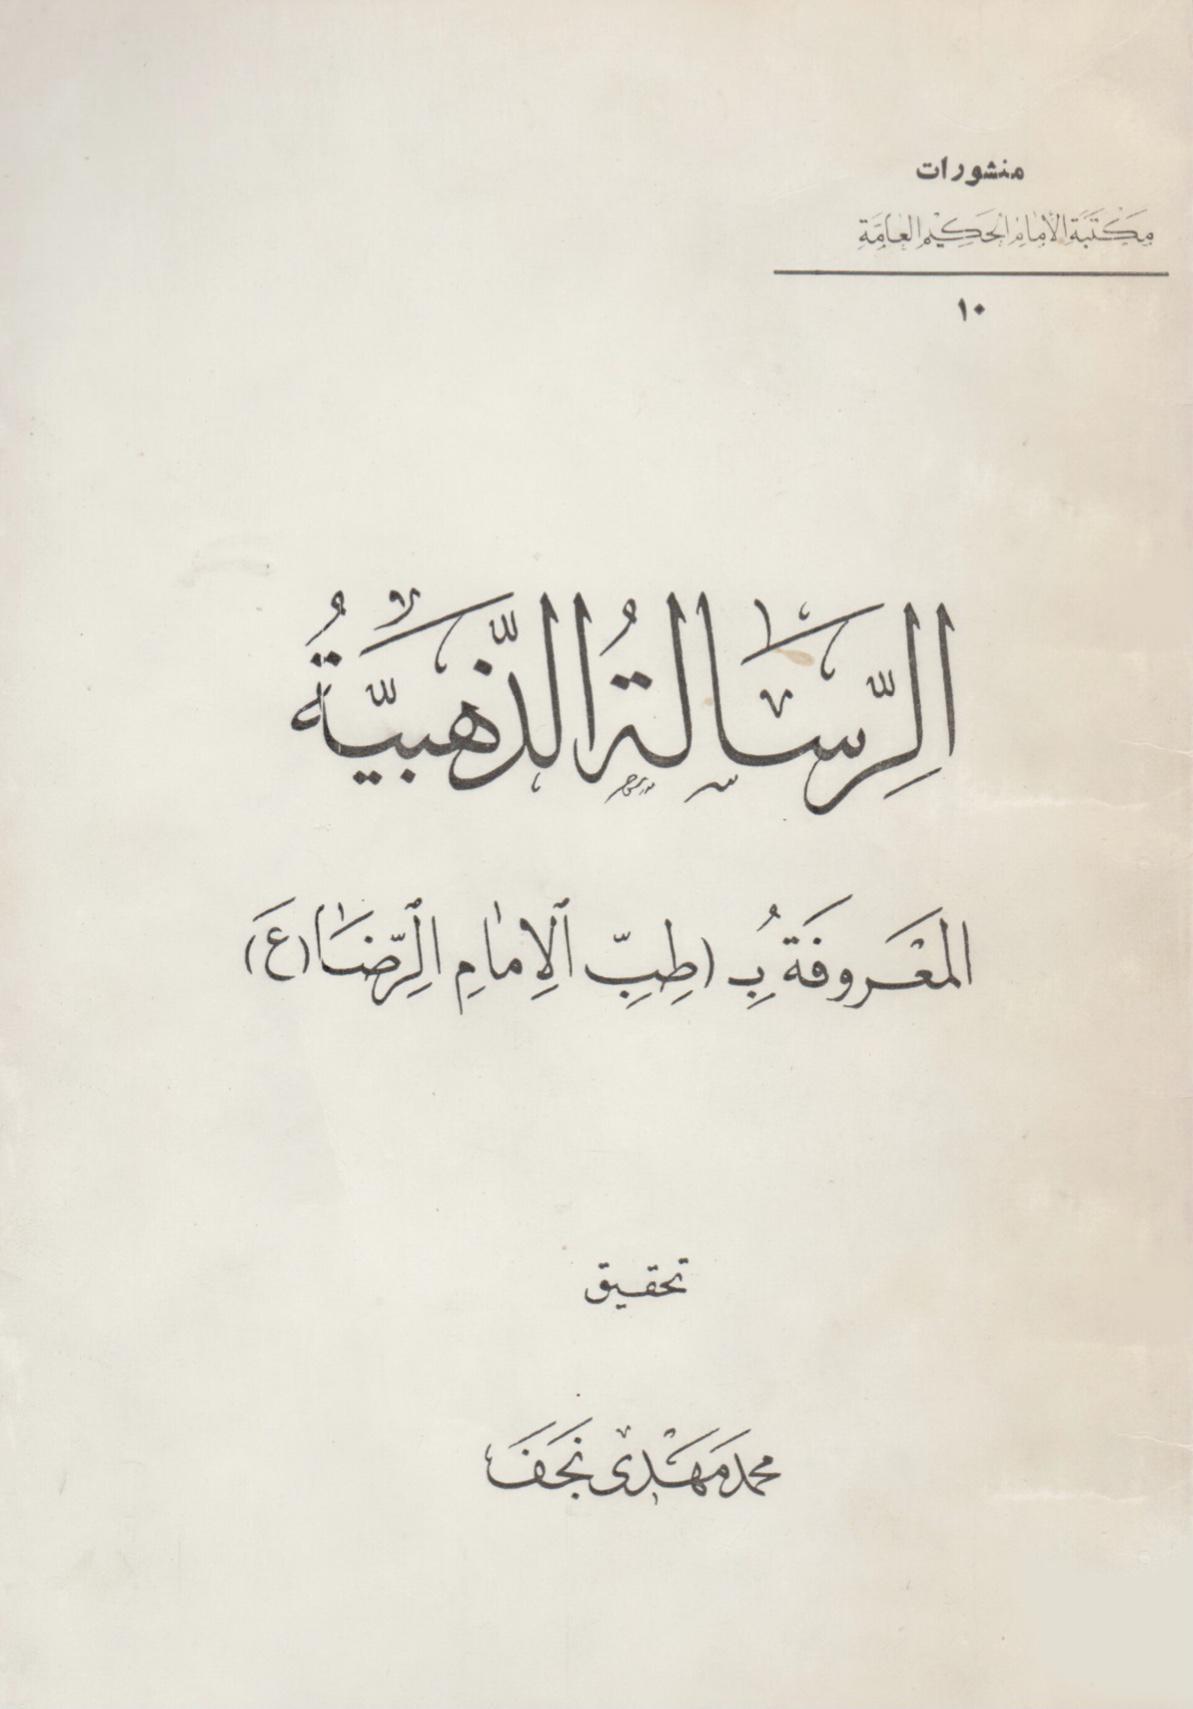 منشورات
مكتبة الإمام الحكيم العامة
١٠
الرِّسَالَةُ الذَّهَبِيَّةُ
المَعْرُوفَة بِـ (طِبِّ الإِمَامِ الرِّضَا (ع)
تحقيق
محمد مَهْدي نَجَف